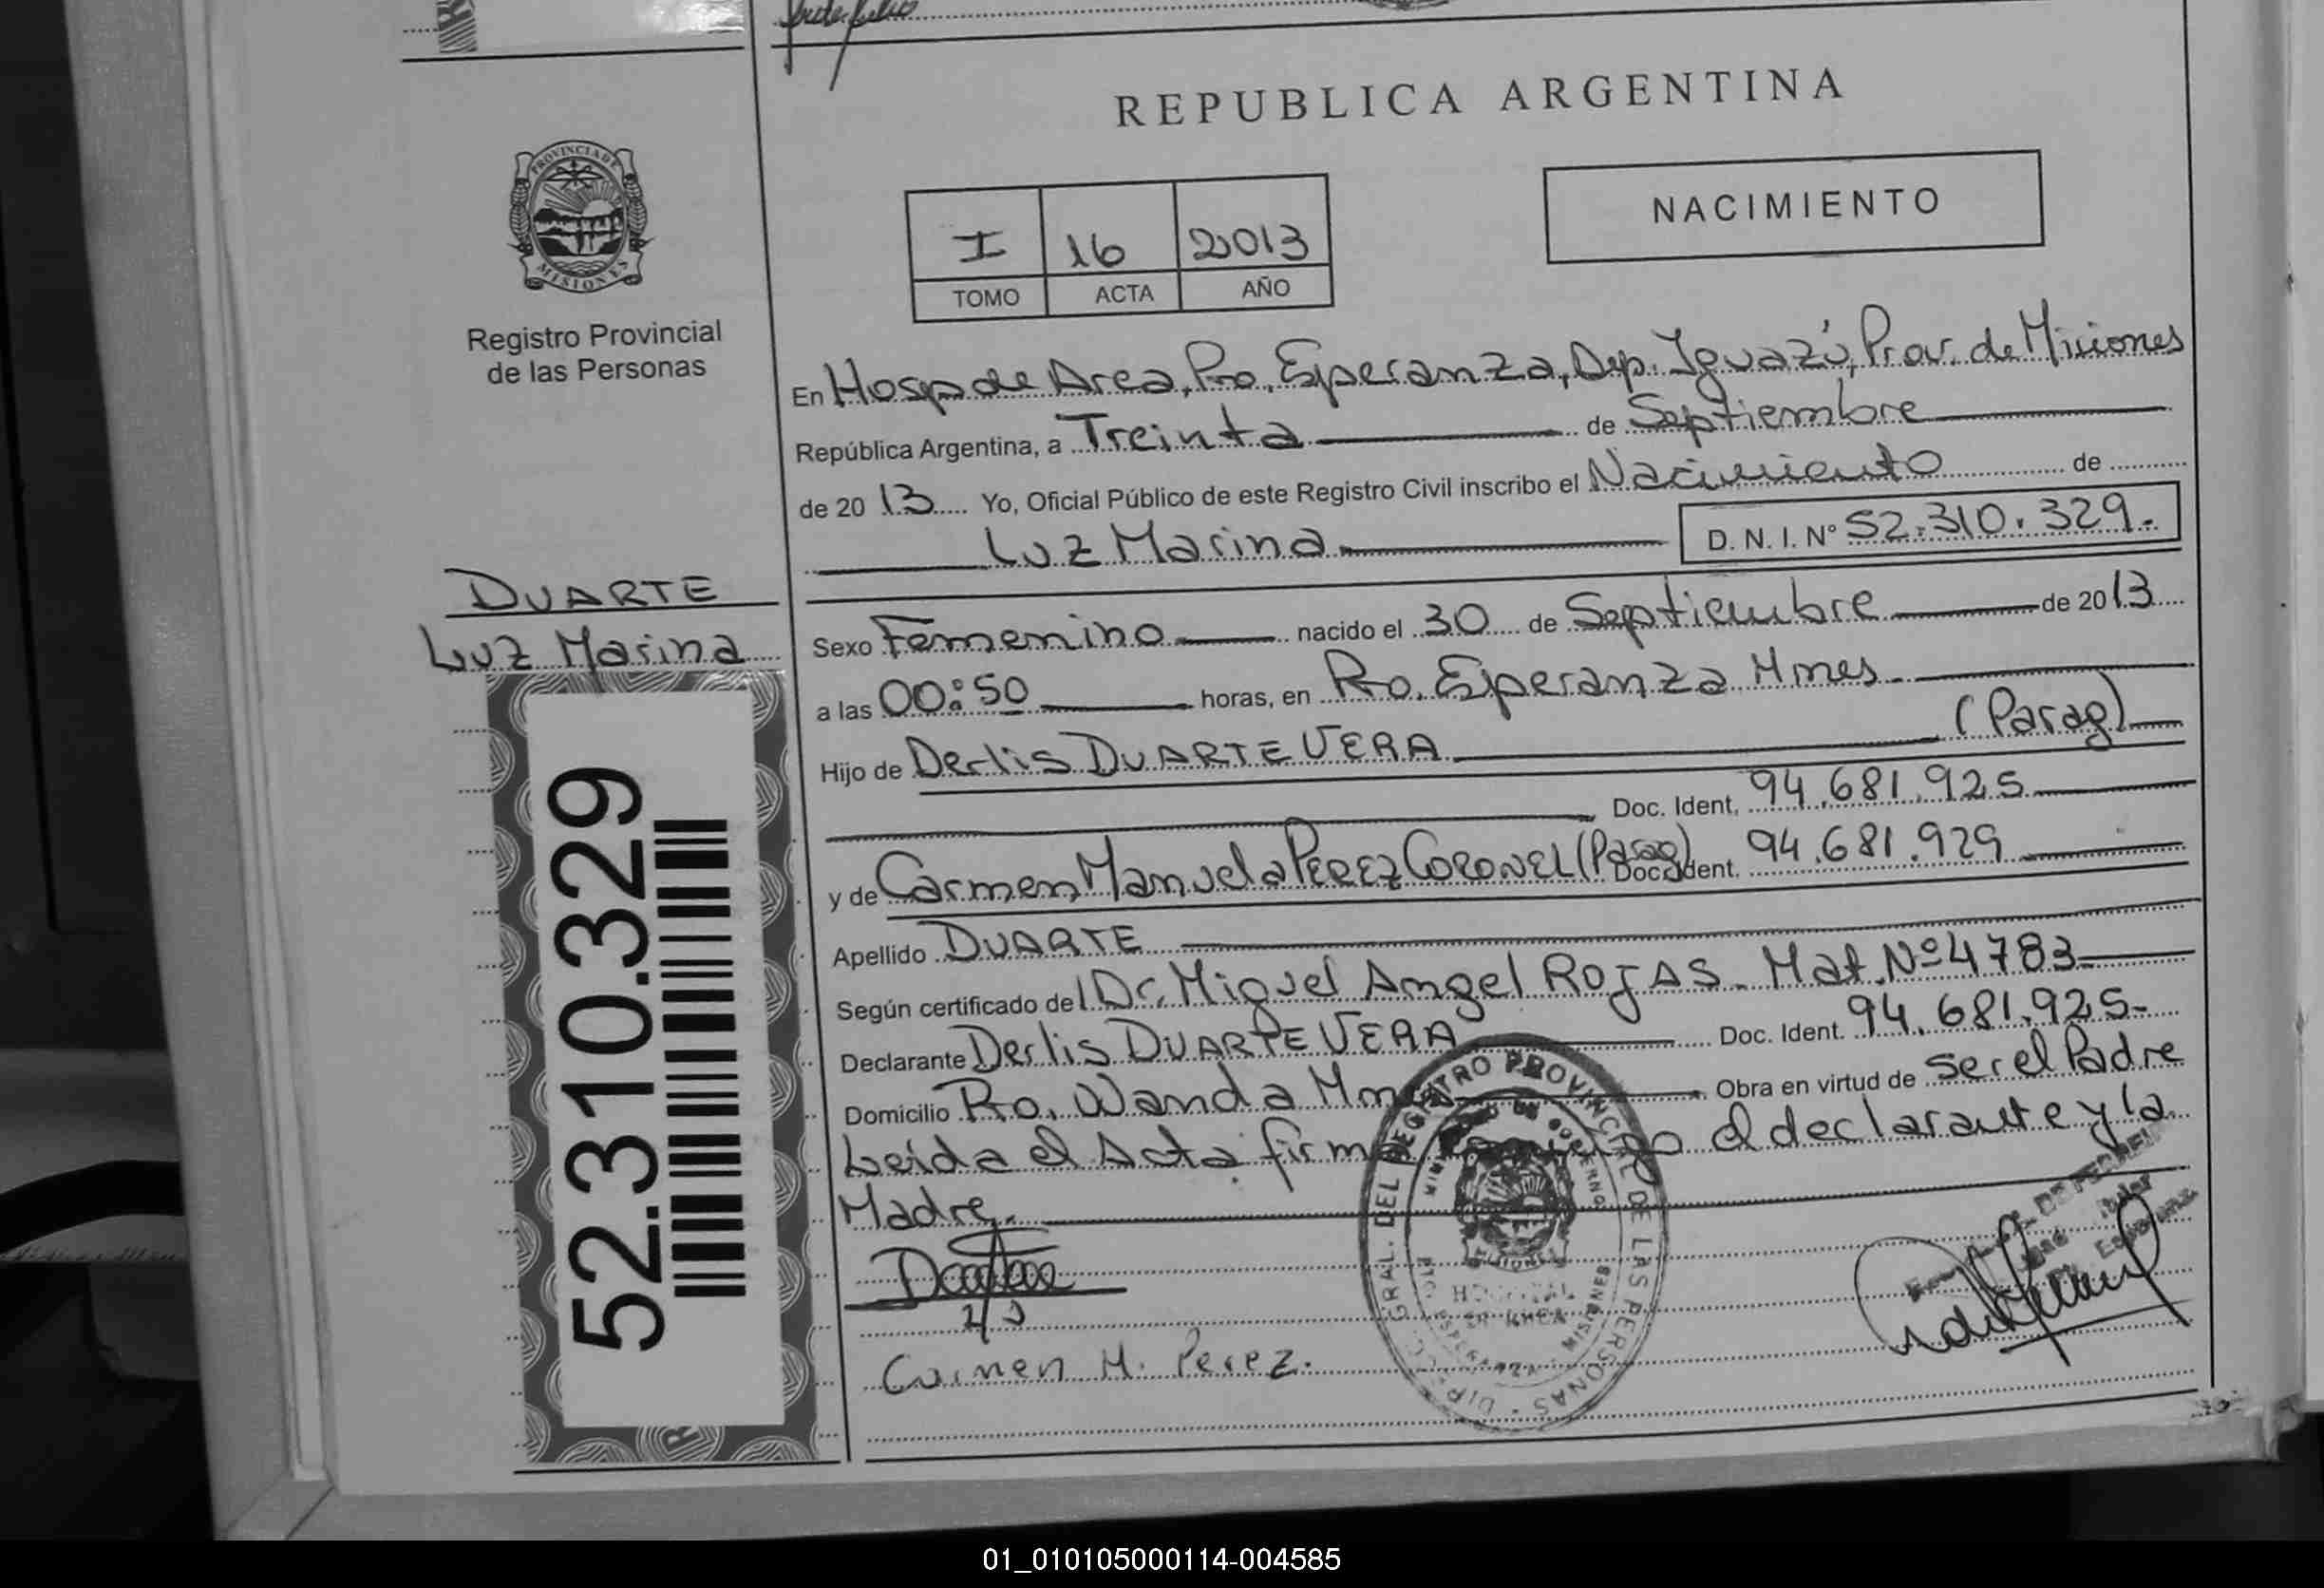 REPUBLICA ARGENTINA
PROVINCIA DE
MISIONES
Registro Provincial
de las Personas
I 16 2013
TOMO ACTA AÑO
NACIMIENTO
En Hosp de Area, Pto. Esperanza, Dep. Iguazú, Prov. de Misiones
República Argentina, a Treinta de Septiembre
de 20 13 Yo, Oficial Público de este Registro Civil inscribo el Nacimiento de
Luz Marina D. N. I. Nº 52.310.329.-
DUARTE
Luz Marina
52.310.329
Sexo Femenino nacido el 30 de Septiembre de 20 13
a las 00:50 horas, en Pto. Esperanza Mnes
Hijo de Derlis DUARTE VERA (Parag)
Doc. Ident. 94.681.925
y de Carmen Manuela PEREZ CORONEL (Parag) Doc. Ident. 94.681.929
Apellido DUARTE
Según certificado del Dr. Miguel Angel ROJAS. Mat. Nº 4783
Declarante Derlis DUARTE VERA Doc. Ident. 94.681.925-
Domicilio Pto. Wanda Mnes Obra en virtud de ser el Padre
Leída el Acta firma conmigo el declarante y la
Madre.
Carmen M. Perez.
DIR. GRAL. DEL REGISTRO PROVINCIAL DE LAS PERSONAS
MISIONES
01_010105000114-004585